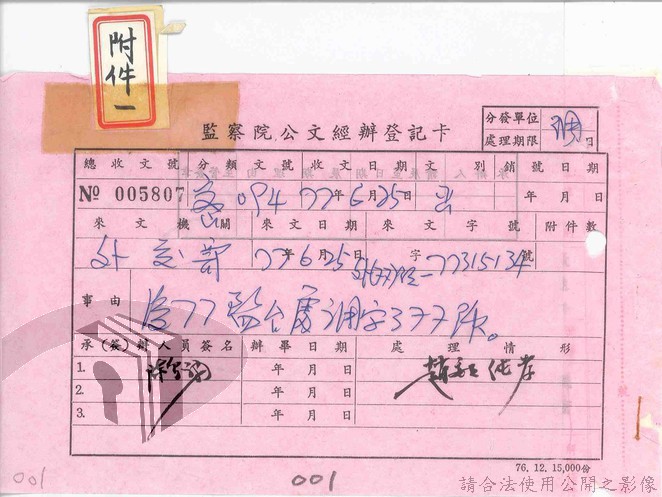 附件一
監察院公文經辦登記卡
分發單位
處理期限 日
總收文號 分類文號 收文日期 文別 銷號日期
№ 005807 密094 77年6月25日 年 月 日
來文機關 來文日期 來文字號 附件數
外交部 77年6月25日 字 77315134號
事由 為77監台處調字377號。
承(簽)辦人員簽名 辦畢日期 處理情形
1. 年 月 日
2. 年 月 日
3. 年 月 日
76. 12. 15,000份
001 001
請合法使用公開之影像